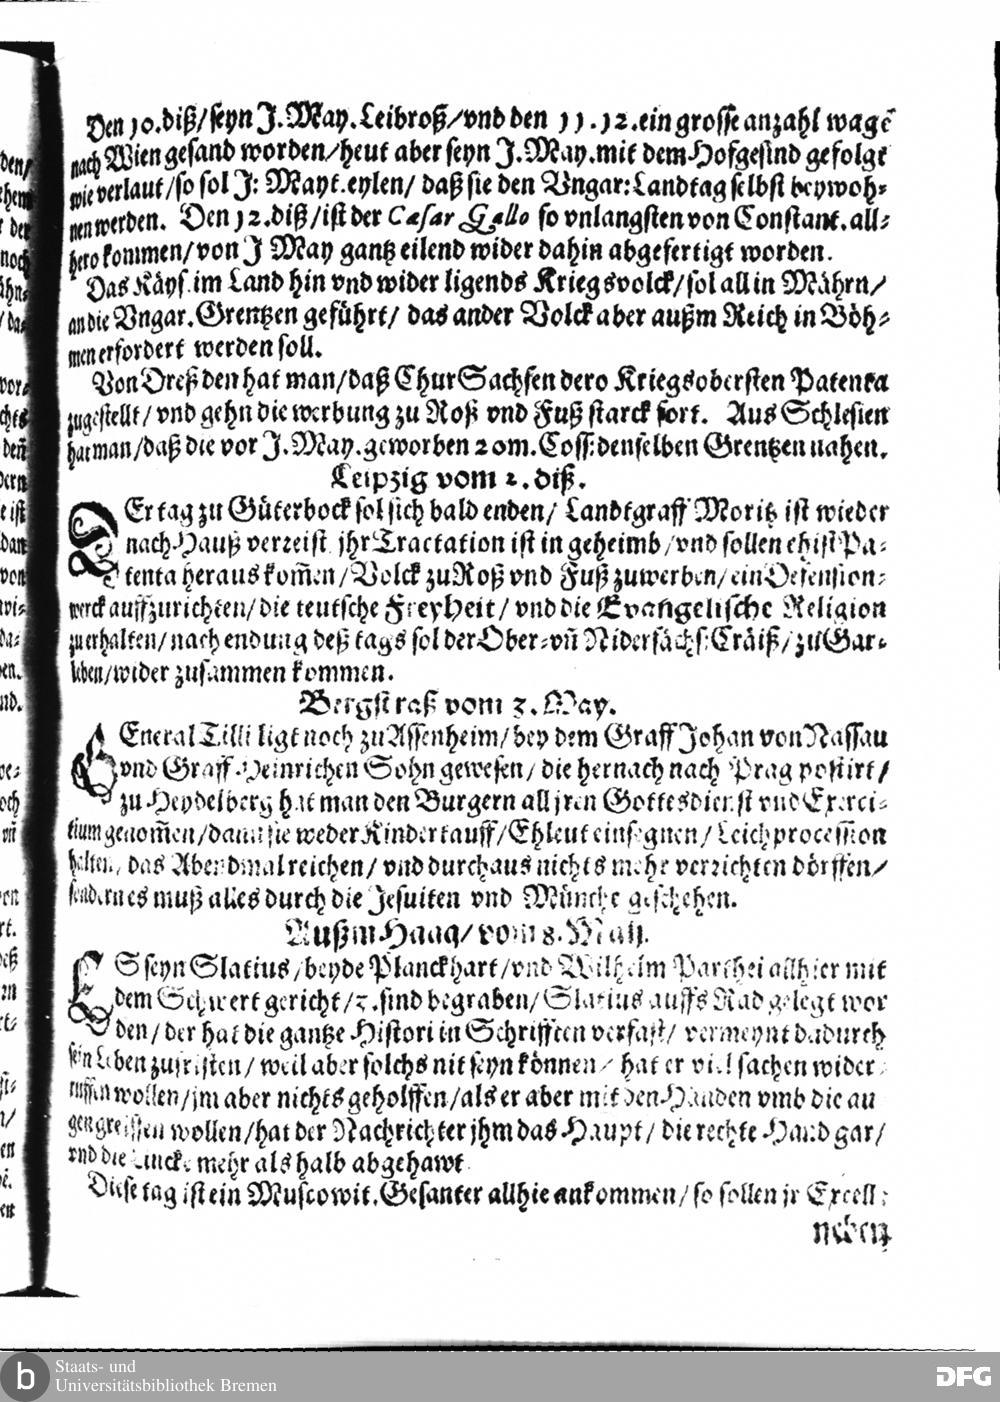 Den 10. diß/ seyn J. May. Leibroß/ vnd den 11. 12. ein grosse anzahl wagē
nach Wien gesand worden/ heut aber seyn J. May. mit dem Hofgesind gefolgt
wie verlaut/ so sol J: Mayt. eylen/ daß sie den Vngar: Landtag selbst beywoh-
nen werden. Den 12. diß/ ist der Cæsar Gallo so vnlangsten von Constant. all-
hero kommen/ von J May gantz eilend wider dahin abgefertigt worden.
Das Käys. im Land hin vnd wider ligends Kriegsvolck/ sol all in Mährn/
an die Vngar. Grentzen geführt/ das ander Volck aber außm Reich in Böh-
men erfordert werden soll.
Von Dreßden hat man/ daß ChurSachsen dero Kriegsobersten Patenta
zugestellt/ vnd gehn die werbung zu Roß vnd Fuß starck fort. Aus Schlesien
hat man/ daß die vor J. May. geworben 20m. Coss: denselben Grentzen nahen.
Leipzig vom 2. diß.
DEr tag zu Güterbock sol sich bald enden/ Landtgraff Moritz ist wieder
nach Hauß verreist jhr Tractation ist in geheimb/ vnd sollen ehist Pa-
tenta heraus kom̄en/ Volck zu Roß vnd Fuß zuwerben/ ein Defension-
werck auffzurichten/ die teutsche Freyheit/ vnd die Evangelische Religion
zuerhalten/ nach endung deß tags sol der Ober- vn̄ Nidersächs: Cräiß/ zu Gar-
leben/ wider zusammen kommen.
Bergstraß vom 3. May.
GEneral Tilli ligt noch zu Assenheim/ bey dem Graff Johan von Nassau
vnd Graff Heinrichen Sohn gewesen/ die hernach nach Prag postirt/
zu Heydelberg hat man den Burgern all jren Gottesdienst vnd Exerci-
tium genom̄en/ dann sie weder Kindertauff/ Ehleut einsegnen/ Leichprocession
halten, das Abendmal reichen/ vnd durchaus nichts mehr verrichten dörffen/
sondern es muß alles durch die Jesuiten vnd Münche geschehen.
Außm Haag/ vom 8. May.
ES seyn Slatius/ beyde Planckhart/ vnd Wilhelm Parthei allhier mit
dem Schwert gericht/ 3. sind begraben/ Slatius auffs Rad gelegt wor
den/ der hat die gantze Histori in Schrifften verfast/ vermeynt dadurch
sein Leben zufristen/ weil aber solchs nit seyn können/ hat er viel sachen wider-
ruffen wollen/ jm aber nichts geholffen/ als er aber mit den Händen vmb die au
gen greiffen wollen/ hat der Nachrichter jhm das Haupt/ die rechte Hand gar/
vnd die Lincke mehr als halb abgehawt.
Diese tag ist ein Muscowit. Gesanter allhie ankommen/ so sollen jr Excell:
neben
Staats- und
Universitätsbibliothek Bremen
DFG